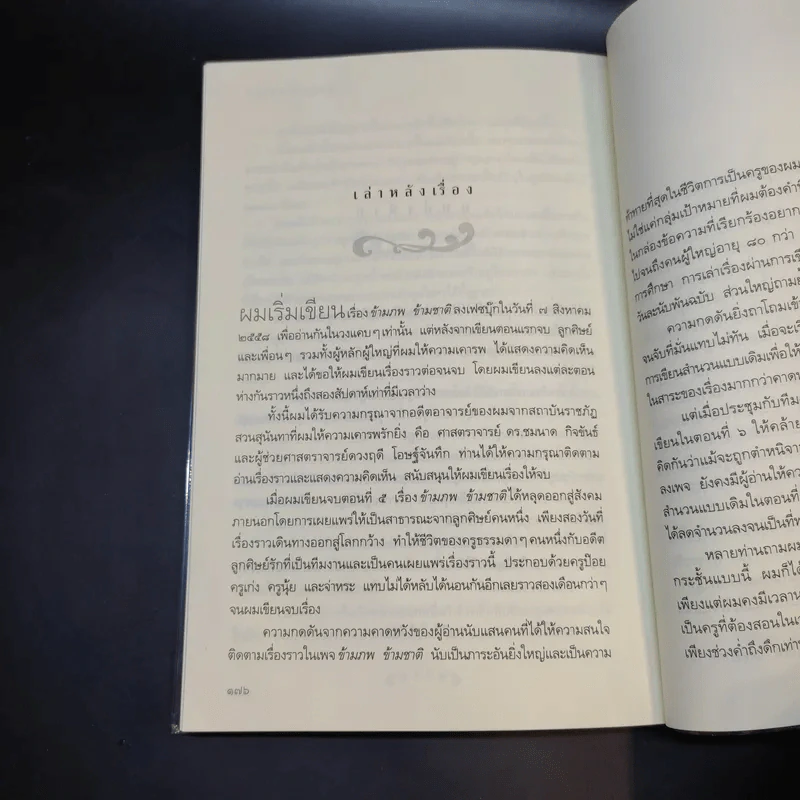 เล่าหลังเรื่อง
ผมเริ่มเขียนเรื่อง ข้ามภพ ข้ามชาติ ลงเฟซบุ๊กในวันที่ ๗ สิงหาคม
๒๕๕๘ เพื่ออ่านกันในวงแคบๆ เท่านั้น แต่หลังจากเขียนตอนแรกจบ ลูกศิษย์
และเพื่อนๆ รวมทั้งผู้หลักผู้ใหญ่ที่ผมให้ความเคารพ ได้แสดงความคิดเห็น
มากมาย และได้ขอให้ผมเขียนเรื่องราวต่อจนจบ โดยผมเขียนลงแต่ละตอน
ห่างกันราวหนึ่งถึงสองสัปดาห์เท่าที่มีเวลาว่าง
ทั้งนี้ผมได้รับความกรุณาจากอดีตอาจารย์ของผมจากสถาบันราชภัฏ
สวนสุนันทาที่ผมให้ความเคารพรักยิ่ง คือ ศาสตราจารย์ ดร.ชมนาด กิจขันธ์
และผู้ช่วยศาสตราจารย์ดวงฤดี โอษฐ์จันทึก ท่านได้ให้ความกรุณาติดตาม
อ่านเรื่องราวและแสดงความคิดเห็น สนับสนุนให้ผมเขียนเรื่องให้จบ
เมื่อผมเขียนจบตอนที่ ๕ เรื่อง ข้ามภพ ข้ามชาติ ได้หลุดออกสู่สังคม
ภายนอกโดยการเผยแพร่ให้เป็นสาธารณะจากลูกศิษย์คนหนึ่ง เพียงสองวันที่
เรื่องราวเดินทางออกสู่โลกกว้าง ทำให้ชีวิตของครูธรรมดาๆ คนหนึ่งกับอดีต
ลูกศิษย์รักที่เป็นทีมงานและเป็นคนเผยแพร่เรื่องราวนี้ ประกอบด้วยครูป๊อย
ครูเก่ง ครูนุ้ย และจ่าหระ แทบไม่ได้หลับได้นอนกันอีกเลยราวสองเดือนกว่าๆ
จนผมเขียนจบเรื่อง
ความกดดันจากความคาดหวังของผู้อ่านนับแสนคนที่ได้ให้ความสนใจ
ติดตามเรื่องราวในเพจ ข้ามภพ ข้ามชาติ นับเป็นภาระอันยิ่งใหญ่และเป็นความ
๑๗๖
ท้าทายที่สุดในชีวิตการเป็นครูของผม
ไม่ใช่แค่กลุ่มเป้าหมายที่ผมต้องคำ
ในกล่องข้อความที่เรียกร้องอยาก
ไปจนถึงคนผู้ใหญ่อายุ ๘๐ กว่า
การศึกษา การเล่าเรื่องผ่านการเขี
วันละนับพันฉบับ ส่วนใหญ่ถาม
ความกดดันยิ่งถาโถมเข้า
จนจับที่มั่นแทบไม่ทัน เมื่อจะเรี
การเขียนสำนวนแบบเดิมเพื่อให้
ในสาระของเรื่องมากกว่าคาด
แต่เมื่อประชุมกับทีม
เขียนในตอนที่ ๖ ให้คล้าย
คิดกันว่าแม้จะถูกตำหนิจา
ลงเพจ ยังคงมีผู้อ่านให้คว
สำนวนแบบเดิมในตอนที่
ได้ลดจำนวนลงจนเป็นที่
หลายท่านถามผม
กระชั้นแบบนี้ ผมก็ได้
เพียงแต่ผมคงมีเวลา
เป็นครูที่ต้องสอนใน
เพียงช่วงค่ำถึงดึกเท่า